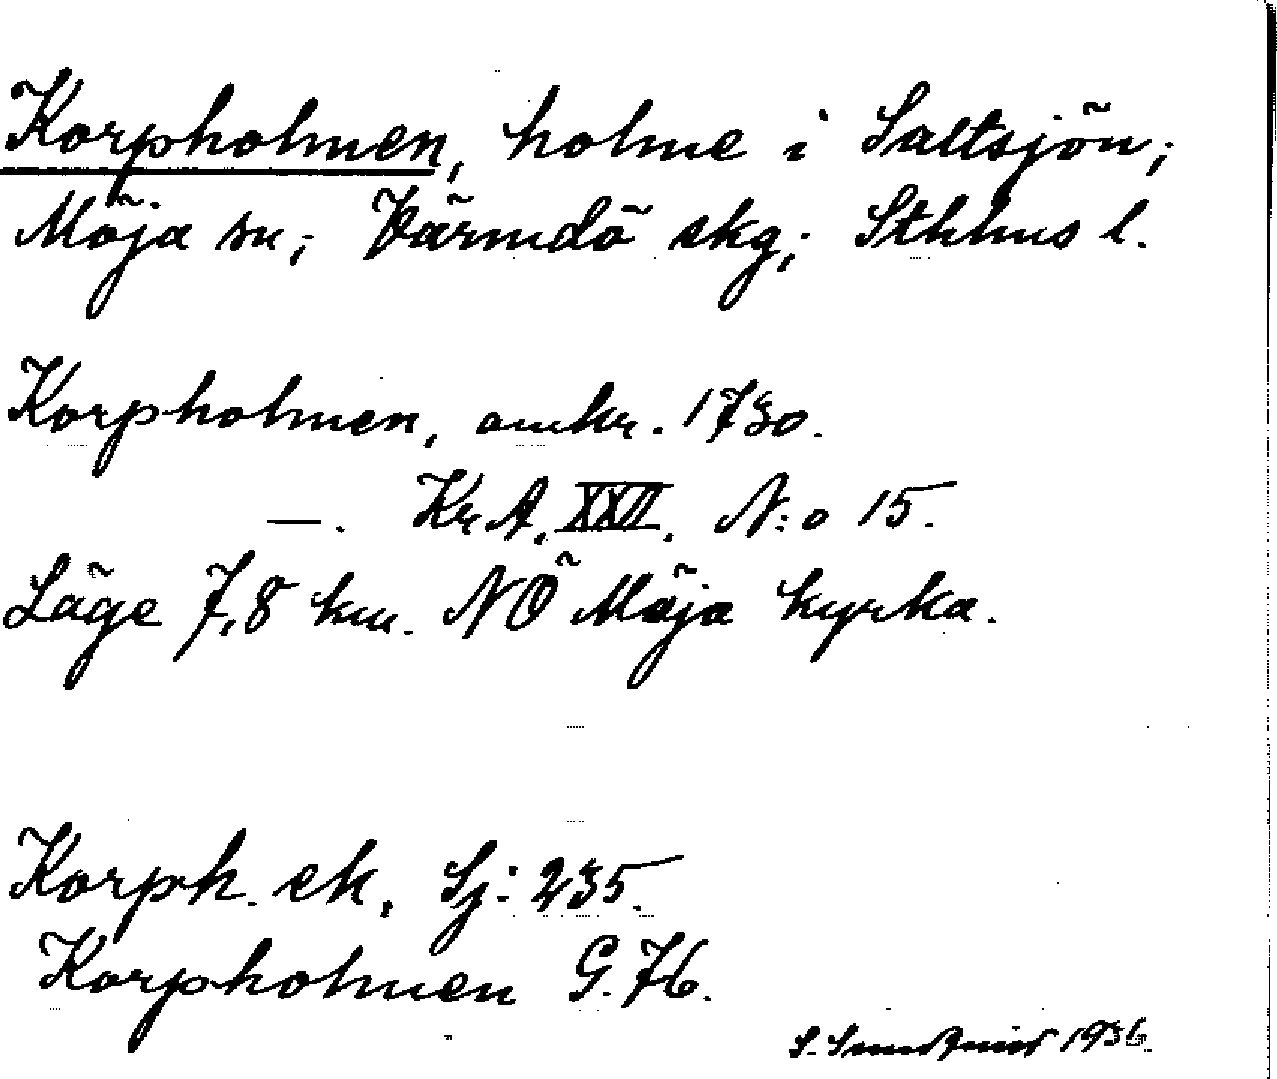 Korpholmen, holme i Saltsjön;
Möja sn; Värmdö skg; Sthlms l.
Korpholmen, omkr. 1730.
—. KrA. XXII. N:o 15.
Läge 7,8 km. NÖ Möja kyrka.
Korph. ek. Sj: 235.
Korpholmen G. 76.
1936.